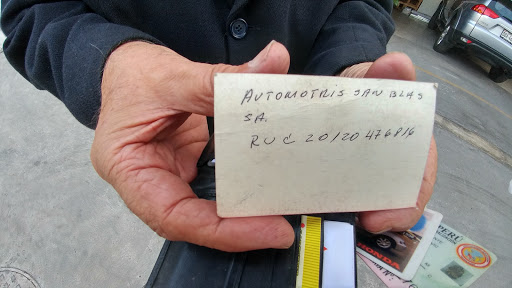 AUTOMOTRIS SAN BLAS
SA.
RUC 20120476816
PERU